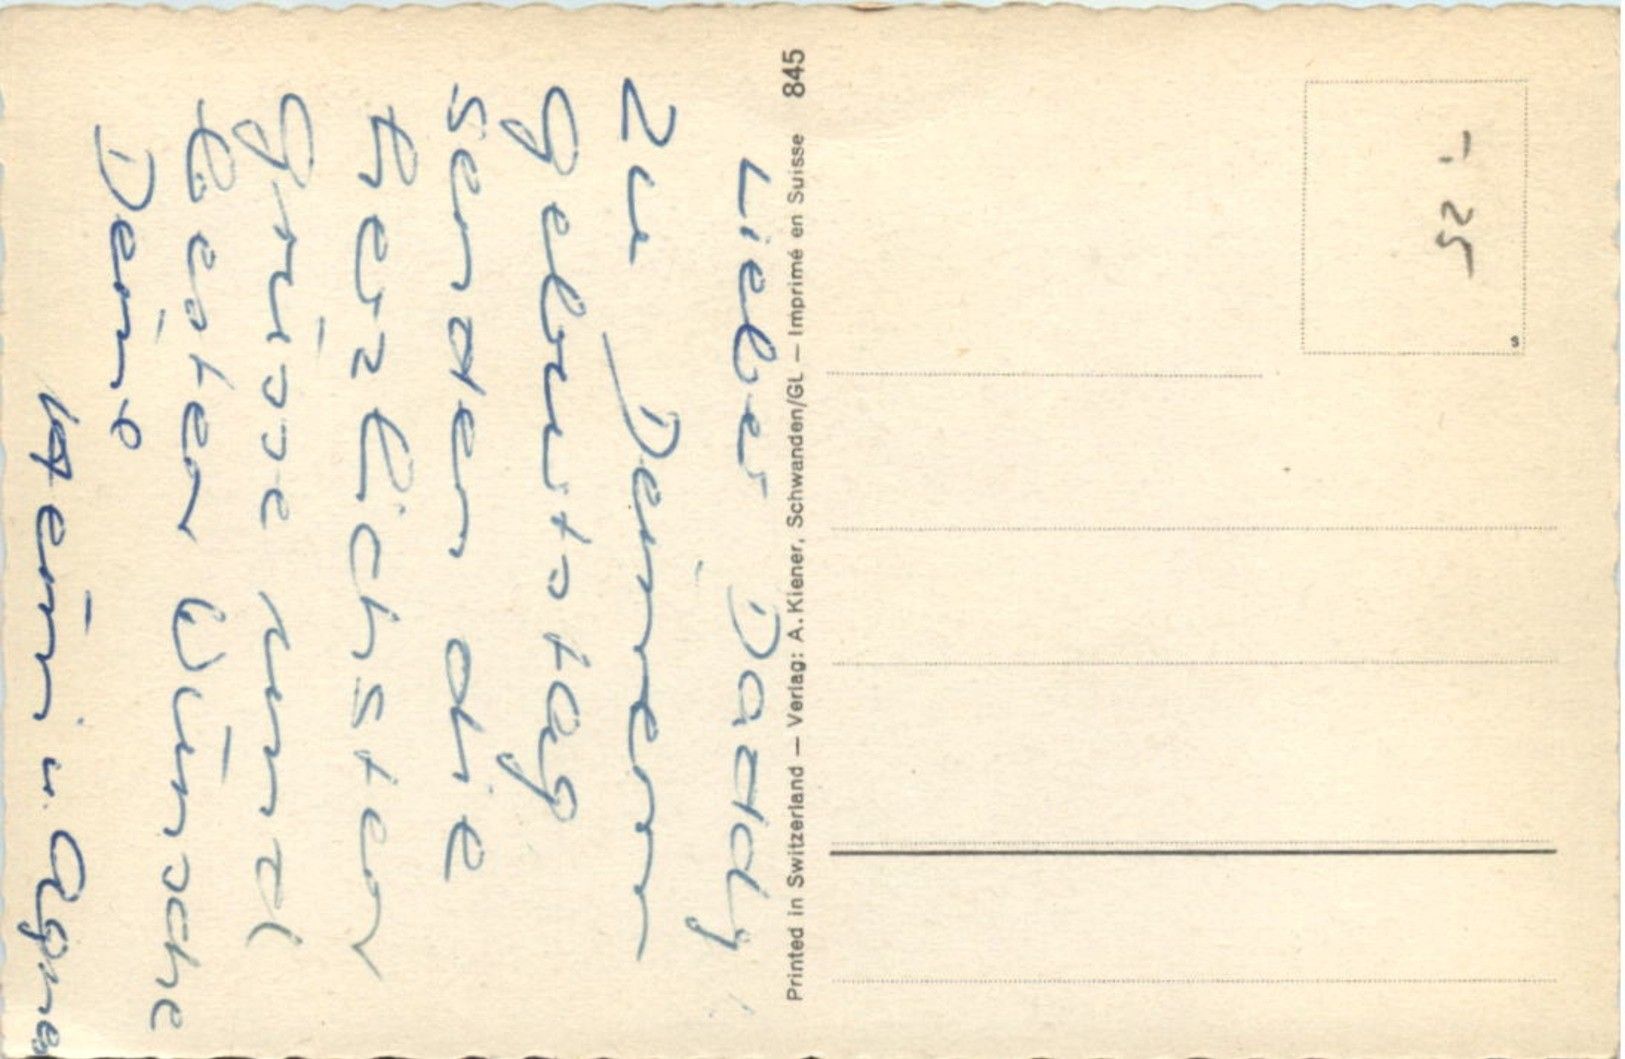 Lieber Daddy!
Zu Deinem
Geburtstag
senden die
herzlichsten
Grüsse und
besten Wünsche
Deine
Heini u. Agnes
Printed in Switzerland — Verlag: A. Kiener, Schwanden/GL — Imprimé en Suisse 845
S